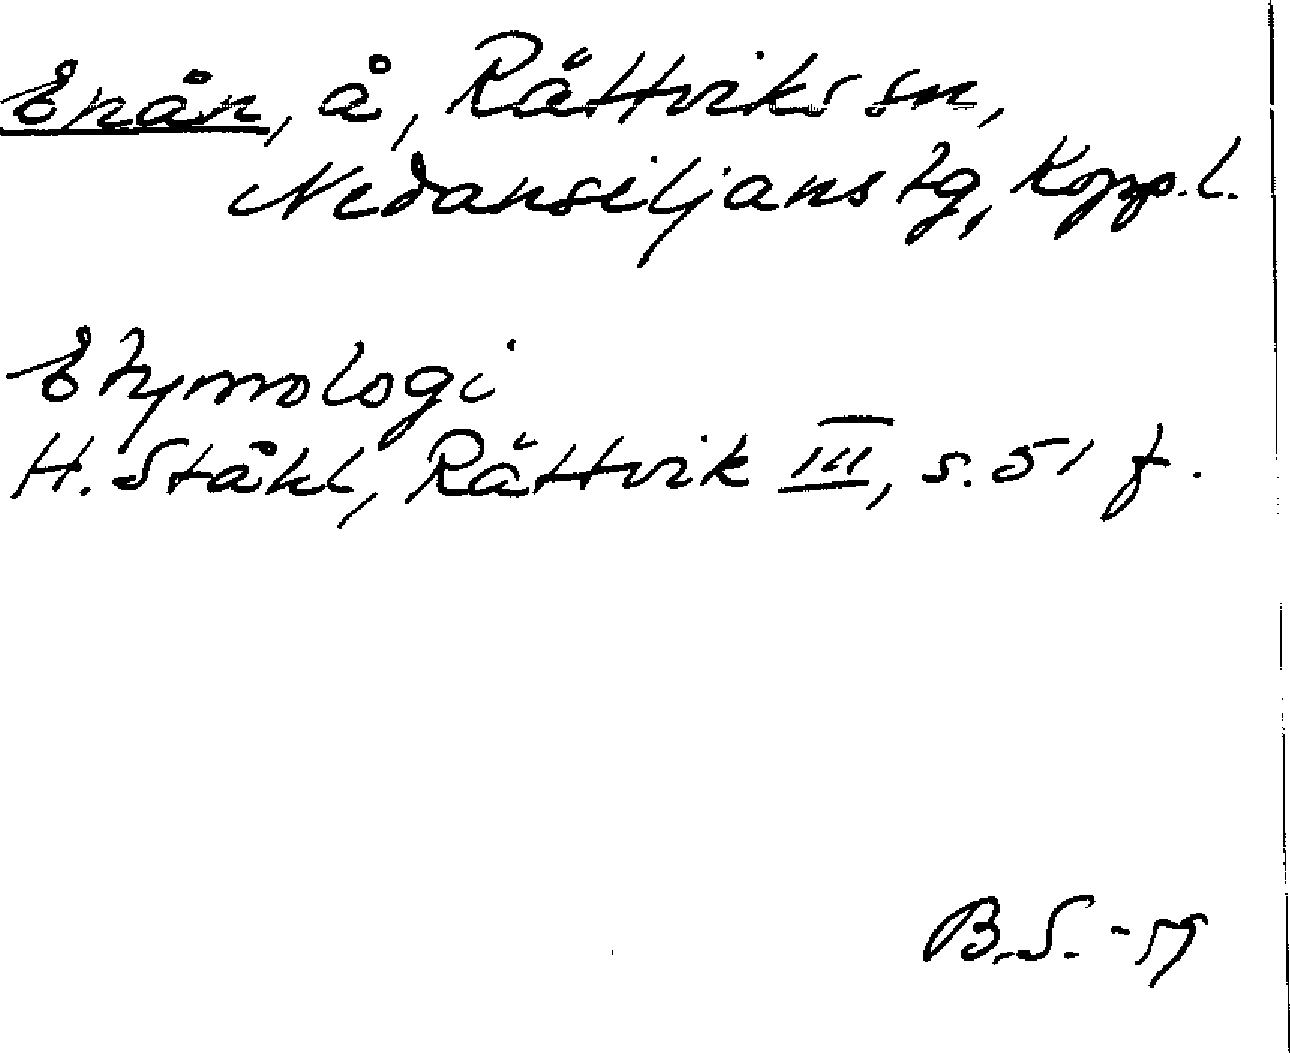 Enån, å, Rättviks sn,
Nedansiljans tg, Kopp.l.
Etymologi
H. Ståhl, Rättvik III, s. 51 f.
B.S. -59